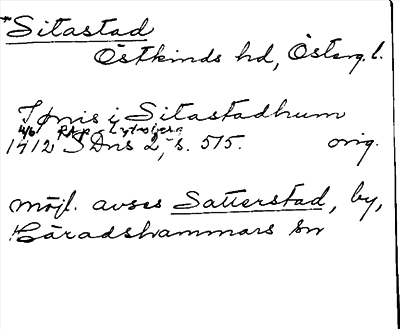 *Sitastad
Östkinds hd, Österg. l.
Jønis i Sitastadhum
4/6
1412 SDns 2, s. 515. orig.
möjl. avses Satterstad, by,
Häradshammars sn